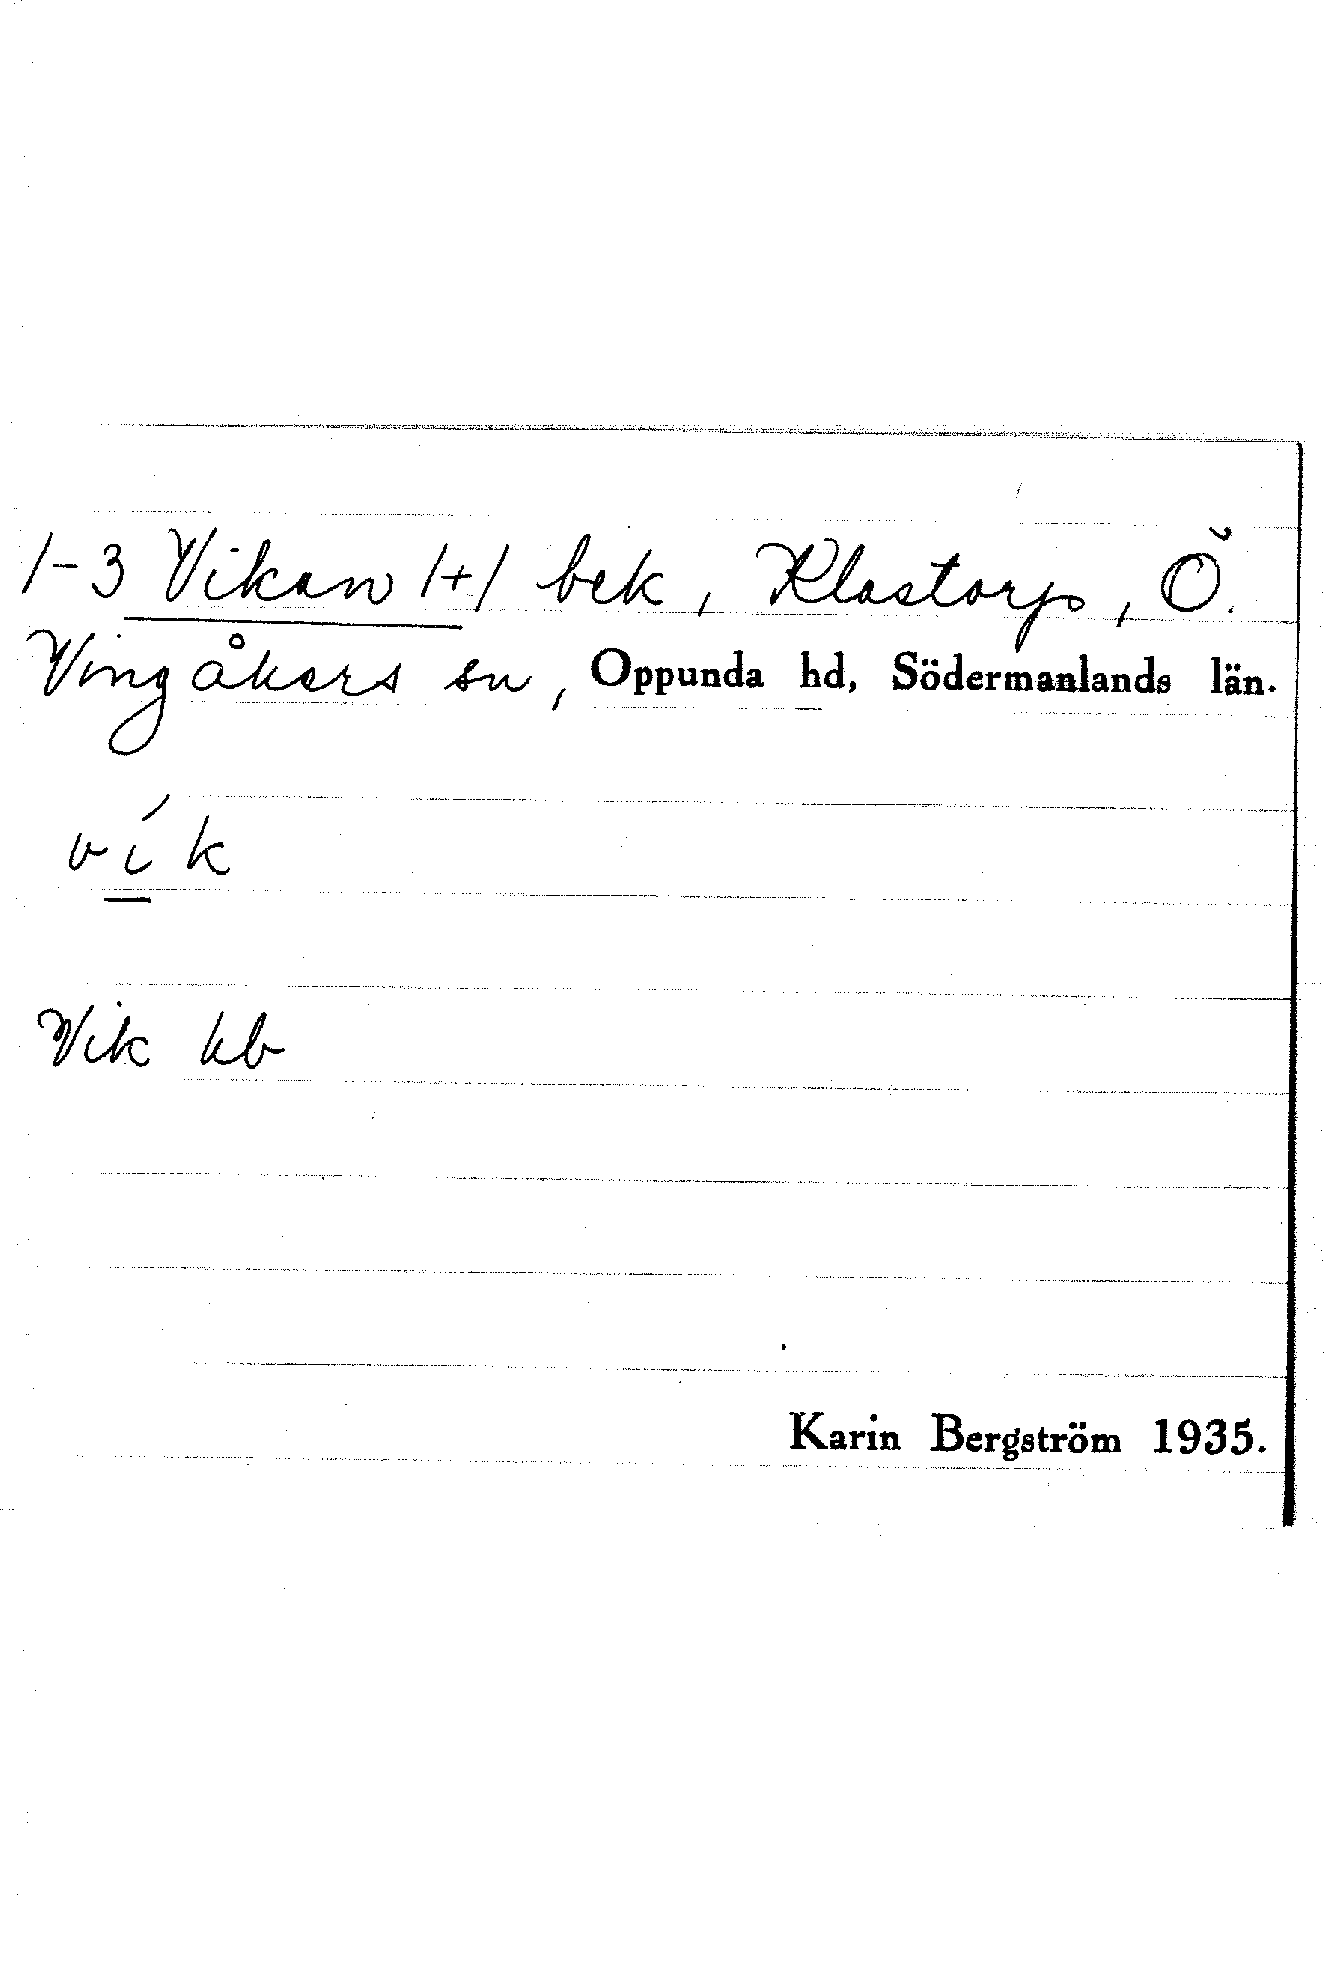 1-3 Vikan /+/ bek, Klastorp, Ö.
Vingåkers sn, Oppunda hd, Södermanlands län.
vík
Vik kb
Karin Bergström 1935.